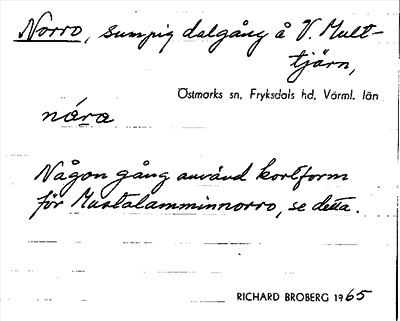 Norro, sumpig dalgång å V. Mult-
tjärn,
Östmarks sn. Fryksdals hd. Värml. län
nåra
Någon gång använd kortform
för Mustalamminnorro, se detta.
RICHARD BROBERG 1965